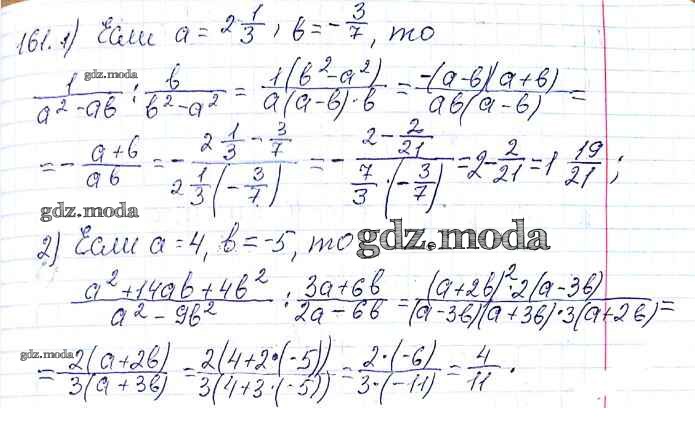 161. 1) Если a = 2 1/3, b = - 3/7, то
gdz.moda
1/(a² - ab) : b/(b² - a²) = 1(b² - a²)/(a(a - b)·b) = -(a - b)(a + b)/(ab(a - b)) =
= - (a + b)/(ab) = - (2 1/3 - 3/7)/(2 1/3 (- 3/7)) = - (2 - 2/21)/(7/3 · (- 3/7)) = 2 - 2/21 = 1 19/21 ;
gdz.moda
2) Если a = 4, b = -5, то
gdz.moda
(a² + 14ab + 4b²)/(a² - 9b²) : (3a + 6b)/(2a - 6b) = ((a + 2b)² · 2(a - 3b))/((a - 3b)(a + 3b) · 3(a + 2b)) =
gdz.moda
= 2(a + 2b)/(3(a + 3b)) = 2(4 + 2·(-5))/(3(4 + 3·(-5))) = 2·(-6)/(3·(-11)) = 4/11 .